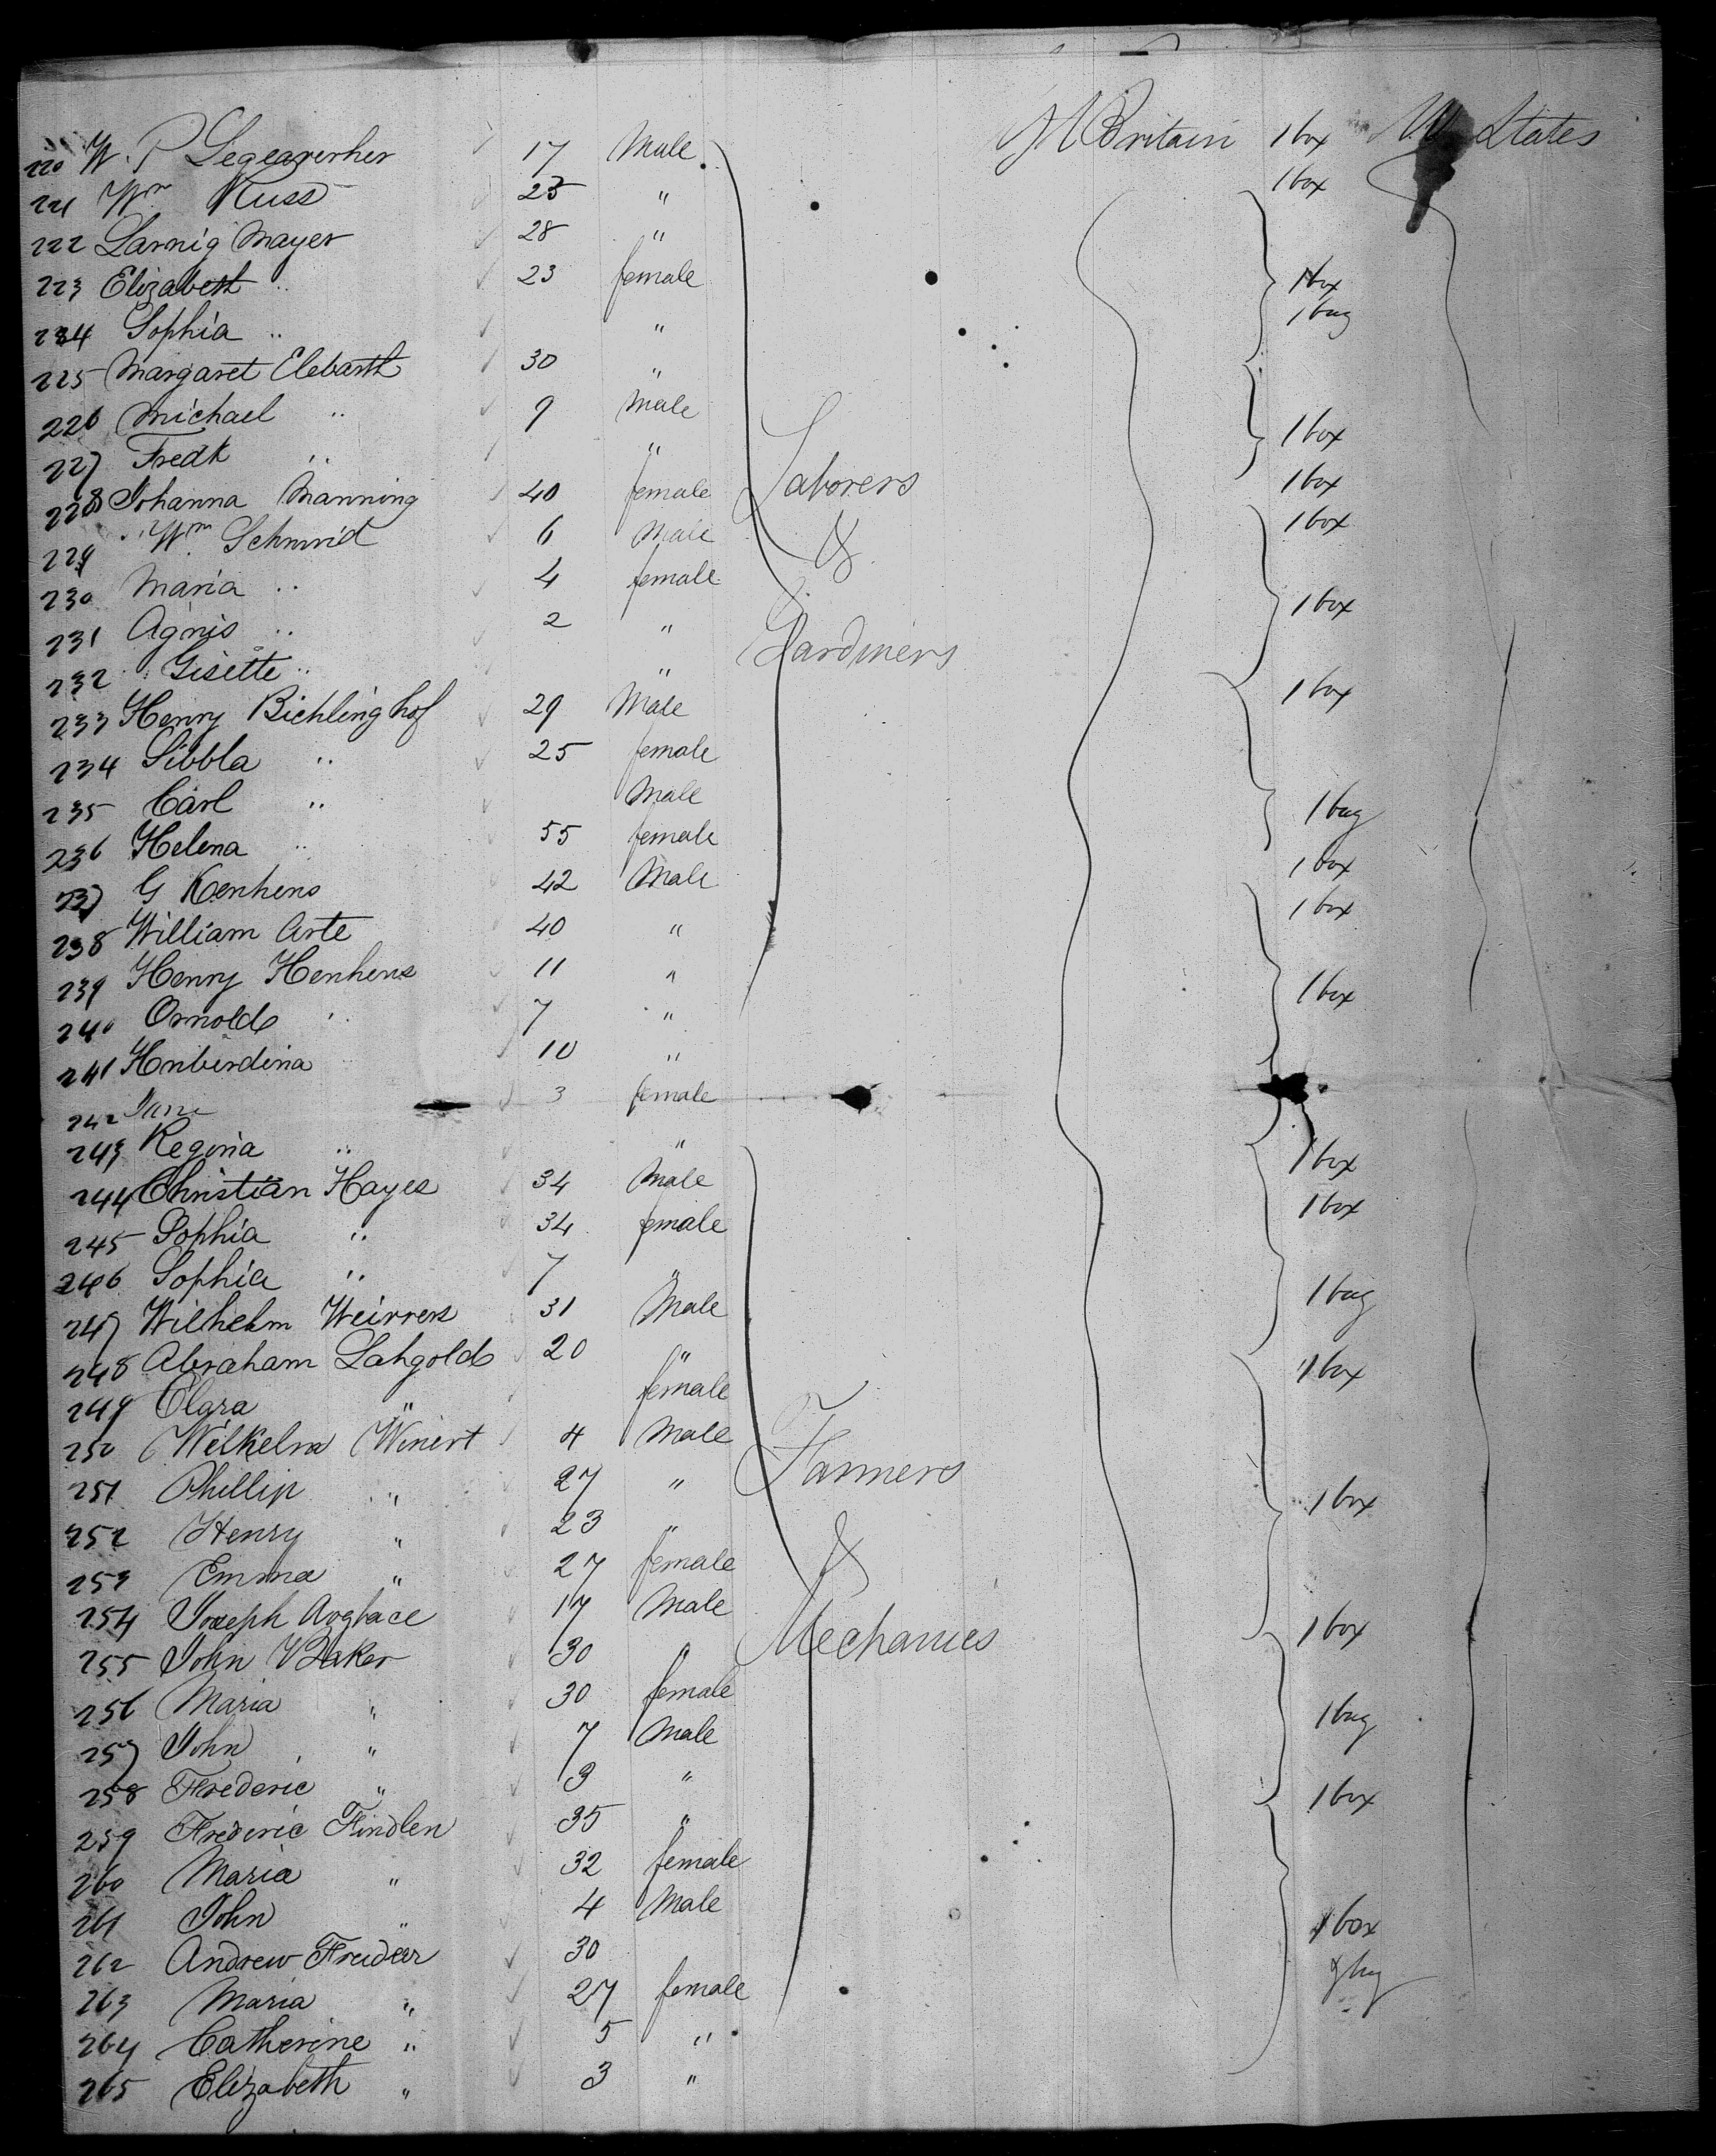 220 W. P Legearerher 17 Male Gt Britain 1 box U States
221 Wm Kuss 25 " 1 box
222 Larnig Mayer 28 "
223 Elizabeth " 23 female 1 box
224 Sophia " " 1 bag
225 Margaret Elebarth 30 "
226 Michael " 9 Male
227 Fredk " " 1 box
228 Johanna Manning 40 female Laborers 1 box
229 Wm Schmid 6 Male & 1 box
230 Maria " 4 female
231 Agnis " 2 " Gardiners 1 box
232 Gisette " "
233 Henry Bichlinghof 29 Male 1 box
234 Sibbla " 25 female
235 Carl " Male 1 bag
236 Helena " 55 female
237 G Kenhens 42 Male 1 box
238 William Arte 40 " 1 box
239 Henry Henhens 11 "
240 Ornold " 7 " 1 box
241 Hnberdina 10 "
242 Jane 3 female
243 Regina " "
244 Christian Hayes 34 Male 1 box
245 Sophia " 34 female 1 box
246 Sophia " 7 "
247 Wilhelm Weirrers 31 Male 1 bag
248 Abraham Lahgold 20 "
249 Clara " female 1 box
250 Wilhelm Winert 4 Male
251 Phillip " 27 " Farmers
252 Henry " 23 " 1 box
253 Emma " 27 female &
254 Joseph Avglace 17 Male
255 John Baker 30 " Mechanics 1 box
256 Maria " 30 female
257 John " 7 Male 1 bag
258 Frederic " 3 "
259 Frederic Findlen 35 " 1 box
260 Maria " 32 female
261 John " 4 Male
262 Andrew Freider 30 1 box
263 Maria " 27 female
264 Catherine " 5 "
265 Elizabeth " 3 "